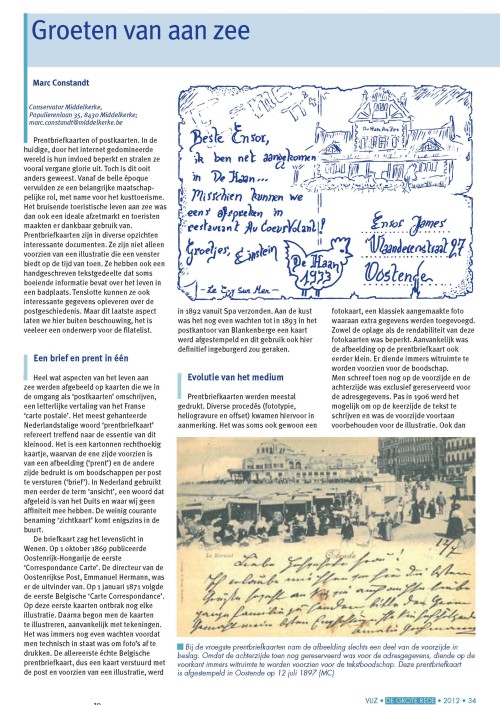 Groeten van aan zee
Marc Constandt
Conservator Middelkerke,
Populierenlaan 35, 8430 Middelkerke;
marc.constandt@middelkerke.be
Prentbriefkaarten of postkaarten. In de
huidige, door het internet gedomineerde
wereld is hun invloed beperkt en stralen ze
vooral vergane glorie uit. Toch is dit ooit
anders geweest. Vanaf de belle époque
vervulden ze een belangrijke maatschap-
pelijke rol, met name voor het kusttoerisme.
Het bruisende toeristische leven aan zee was
dan ook een ideale afzetmarkt en toeristen
maakten er dankbaar gebruik van.
Prentbriefkaarten zijn in diverse opzichten
interessante documenten. Ze zijn niet alleen
voorzien van een illustratie die een venster
biedt op de tijd van toen. Ze hebben ook een
handgeschreven tekstgedeelte dat soms
boeiende informatie bevat over het leven in
een badplaats. Tenslotte kunnen ze ook
interessante gegevens opleveren over de
postgeschiedenis. Maar dit laatste aspect
laten we hier buiten beschouwing, het is
veeleer een onderwerp voor de filatelist.
Een brief en prent in één
Heel wat aspecten van het leven aan
zee werden afgebeeld op kaarten die we in
de omgang als ‘postkaarten’ omschrijven,
een letterlijke vertaling van het Franse
‘carte postale’. Het meest gehanteerde
Nederlandstalige woord ‘prentbriefkaart’
refereert treffend naar de essentie van dit
kleinood. Het is een kartonnen rechthoekig
kaartje, waarvan de ene zijde voorzien is
van een afbeelding (‘prent’) en de andere
zijde bedrukt is om boodschappen per post
te versturen (‘brief’). In Nederland gebruikt
men eerder de term ‘ansicht’, een woord dat
afgeleid is van het Duits en waar wij geen
affiniteit mee hebben. De weinig courante
benaming ‘zichtkaart’ komt enigszins in de
buurt.
De briefkaart zag het levenslicht in
Wenen. Op 1 oktober 1869 publiceerde
Oostenrijk-Hongarije de eerste
‘Correspondance Carte’. De directeur van de
Oostenrijkse Post, Emmanuel Hermann, was
er de uitvinder van. Op 1 januari 1871 volgde
de eerste Belgische ‘Carte Correspondance’.
Op deze eerste kaarten ontbrak nog elke
illustratie. Daarna begon men de kaarten
te illustreren, aanvankelijk met tekeningen.
Het was immers nog even wachten voordat
men technisch in staat was om foto’s af te
drukken. De allereerste échte Belgische
prentbriefkaart, dus een kaart verstuurd met
de post en voorzien van een illustratie, werd
Beste Ensor,
ik ben net aangekomen
in De Haan...
Misschien kunnen we
eens afspreken in
restaurant Au Coeur Volant!
Groetjes, Einstein
De Haan
1933
Ensor James
Vlaanderenstraat 27
Oostende
in 1892 vanuit Spa verzonden. Aan de kust
was het nog even wachten tot in 1893 in het
postkantoor van Blankenberge een kaart
werd afgestempeld en dit gebruik ook hier
definitief ingeburgerd zou geraken.
Evolutie van het medium
Prentbriefkaarten werden meestal
gedrukt. Diverse procedés (fototype,
heliogravure en offset) kwamen hiervoor in
aanmerking. Het was soms ook gewoon een
fotokaart, een klassiek aangemaakte foto
waaraan extra gegevens werden toegevoegd.
Zowel de oplage als de rendabiliteit van deze
fotokaarten was beperkt. Aanvankelijk was
de afbeelding op de prentbriefkaart ook
eerder klein. Er diende immers witruimte te
worden voorzien voor de boodschap.
Men schreef toen nog op de voorzijde en de
achterzijde was exclusief gereserveerd voor
de adresgegevens. Pas in 1906 werd het
mogelijk om op de keerzijde de tekst te
schrijven en was de voorzijde voortaan
voorbehouden voor de illustratie. Ook dan
Ostende
12/7
Bij de vroegste prentbriefkaarten nam de afbeelding slechts een deel van de voorzijde in
beslag. Omdat de achterzijde toen nog exclusief gereserveerd was voor de adresgegevens, diende op de
voorkant immers witruimte te worden voorzien voor de tekstboodschap. Deze prentbriefkaart
is afgestempeld in Oostende op 12 juli 1897 (MC)
VLIZ • DE GROTE REDE • 2012 • 34